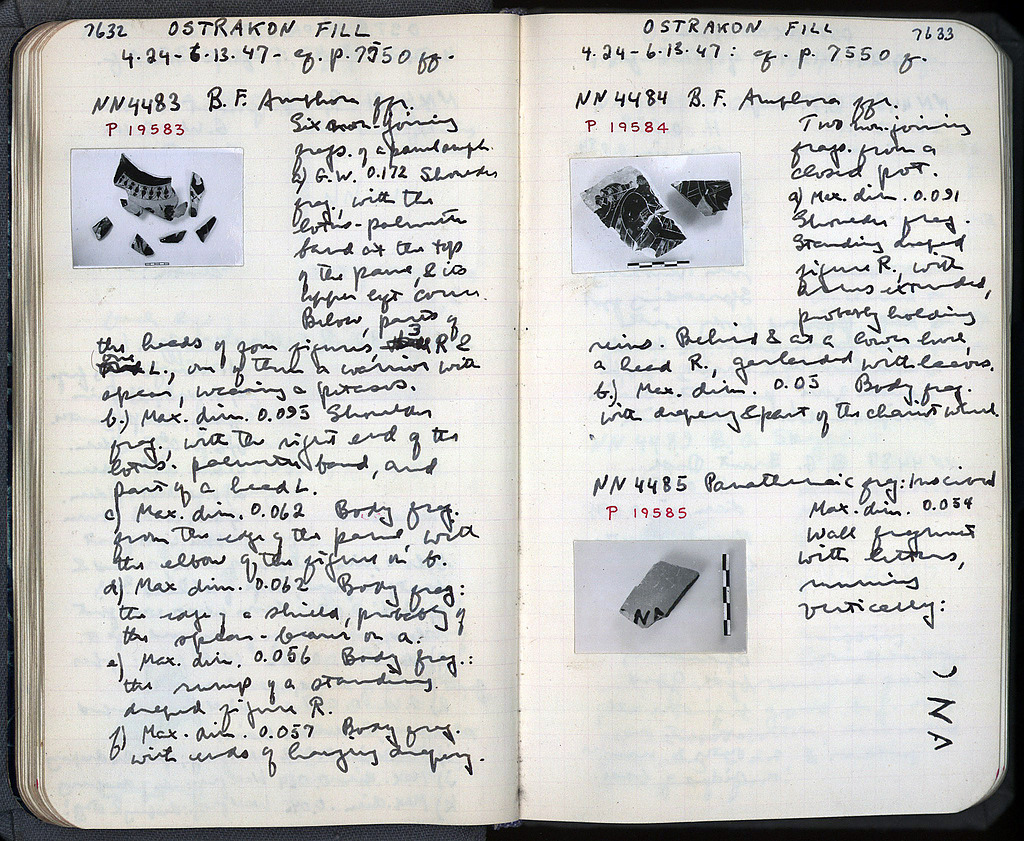 7632 OSTRAKON FILL
4.24-6.13.47- cf. p. 7550 ff.
NN4483 B. F. Amphora frr.
P 19583
Six non-joining
frags. of a panel amph.
a) G.W. 0.172 Shoulder
frag., with the
lotus-palmette
band at the top
of the panel, & its
upper left corner.
Below, parts of
the heads of four figures, 3 R &
one L., one of them a warrior with
spear, wearing a petasos.
b.) Max. dim. 0.095 Shoulder
frag., with the right end of the
lotus-palmette band, and
part of a head L.
c) Max. dim. 0.062 Body frag.
from the edge of the panel with
the elbow of the figure in b.
d) Max dim. 0.062 Body frag:
the edge of a shield, probably of
the spear-bearer on a.
e) Max. dim. 0.056 Body frag.:
the rump of a standing
draped figure R.
f) Max. dim. 0.057 Body frag.
with ends of hanging drapery.
OSTRAKON FILL 7633
4.24-6.13.47: cf. p. 7550 f.
NN 4484 B. F. Amphora frr.
P 19584
Two non-joining
frags. from a
closed pot.
a) Max. dim. 0.091
Shoulder frag.
Standing draped
figure R., with
arms extended,
probably holding
reins. Behind & at a lower level,
a head R., garlanded with leaves.
b.) Max. dim. 0.05 Body frag.
with drapery & part of the chariot wheel.
NN 4485 Panathenaic frag: Inscribed
P 19585
Max. dim. 0.054
Wall fragment
with letters,
running
vertically:
Ν Α